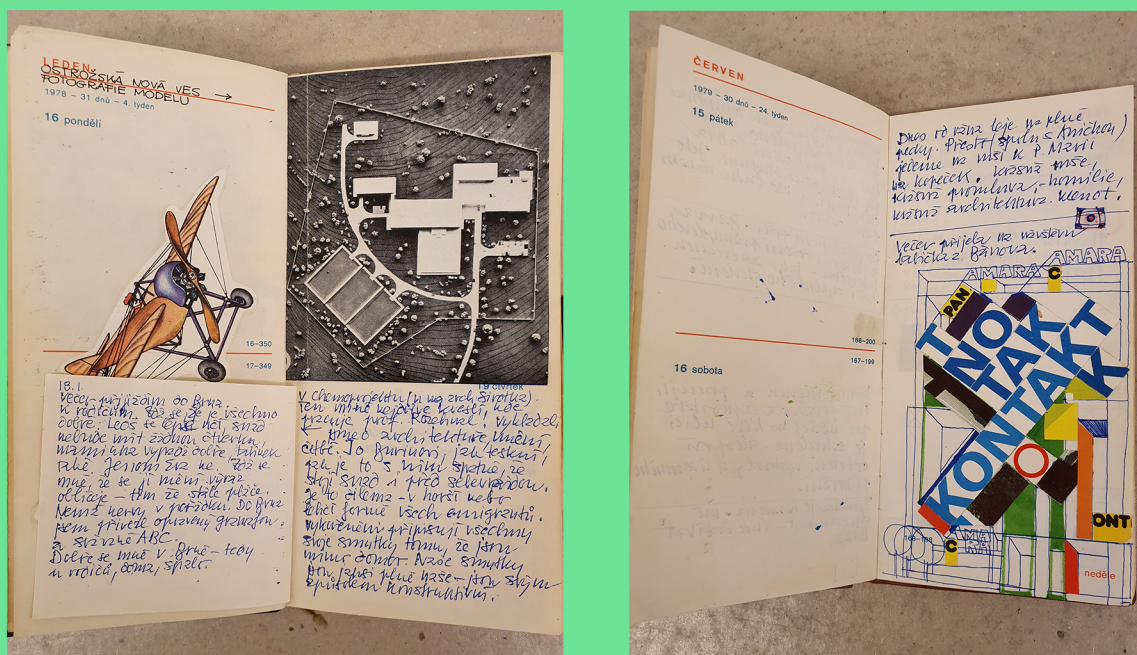 LEDEN
OSTROŽSKÁ NOVÁ VES →
FOTOGRAFIE MODELU
1978 – 31 dnů – 4. týden
16 pondělí
16–350
17–349
18.1.
Večer přijíždím do Brna
k rodičům. Zdá se že je všechno
dobré. Leoš se lépe učí, snad
nebude mít žádnou čtverku,
maminka vypadá dobře, tatínek
také. Jenom Eva ne. Zdá se
mně, že se jí mění výraz
obličeje – tím že stále pláče.
Nemá nervy v pořádku. Do Brna
jsem přivezl opravený gramofon
a svázané ABC.
Dobře se mně v Brně – tedy
u rodičů, doma, spalo.
19 čtvrtek
v Chemoprojektu (u ing. arch. Sirotka)
jen mně nejdříve kreslí, kde
pracuje prof. Rozehnal, vykládal
o architektuře, umění,
je to s ním špatné, že
stojí snad i před sebevraždou.
Je to dilema – v horší nebo
lehčí formě všech emigrantů.
vykořenění připisují všechny
svoje smutky tomu, že jsou
mimo domov. Naše smutky
jsou
způsobem konstruktivní.
ČERVEN
1979 – 30 dnů – 24. týden
15 pátek
166–200
167–199
16 sobota
Dnes od rána leje na plné
pecky. Přesto (spolu s Aničkou)
jedeme na mši k P. Marii
na kopeček. Krásná mše,
krásná promluva, – homilie,
krásná architektura.
Večer přijela na návštěvu
babička z Bánova.
AMARA AMARA
C
PAN.
T
NO
TAK
KONTAKT
K
ONT
C
AMARA
168–198
neděle